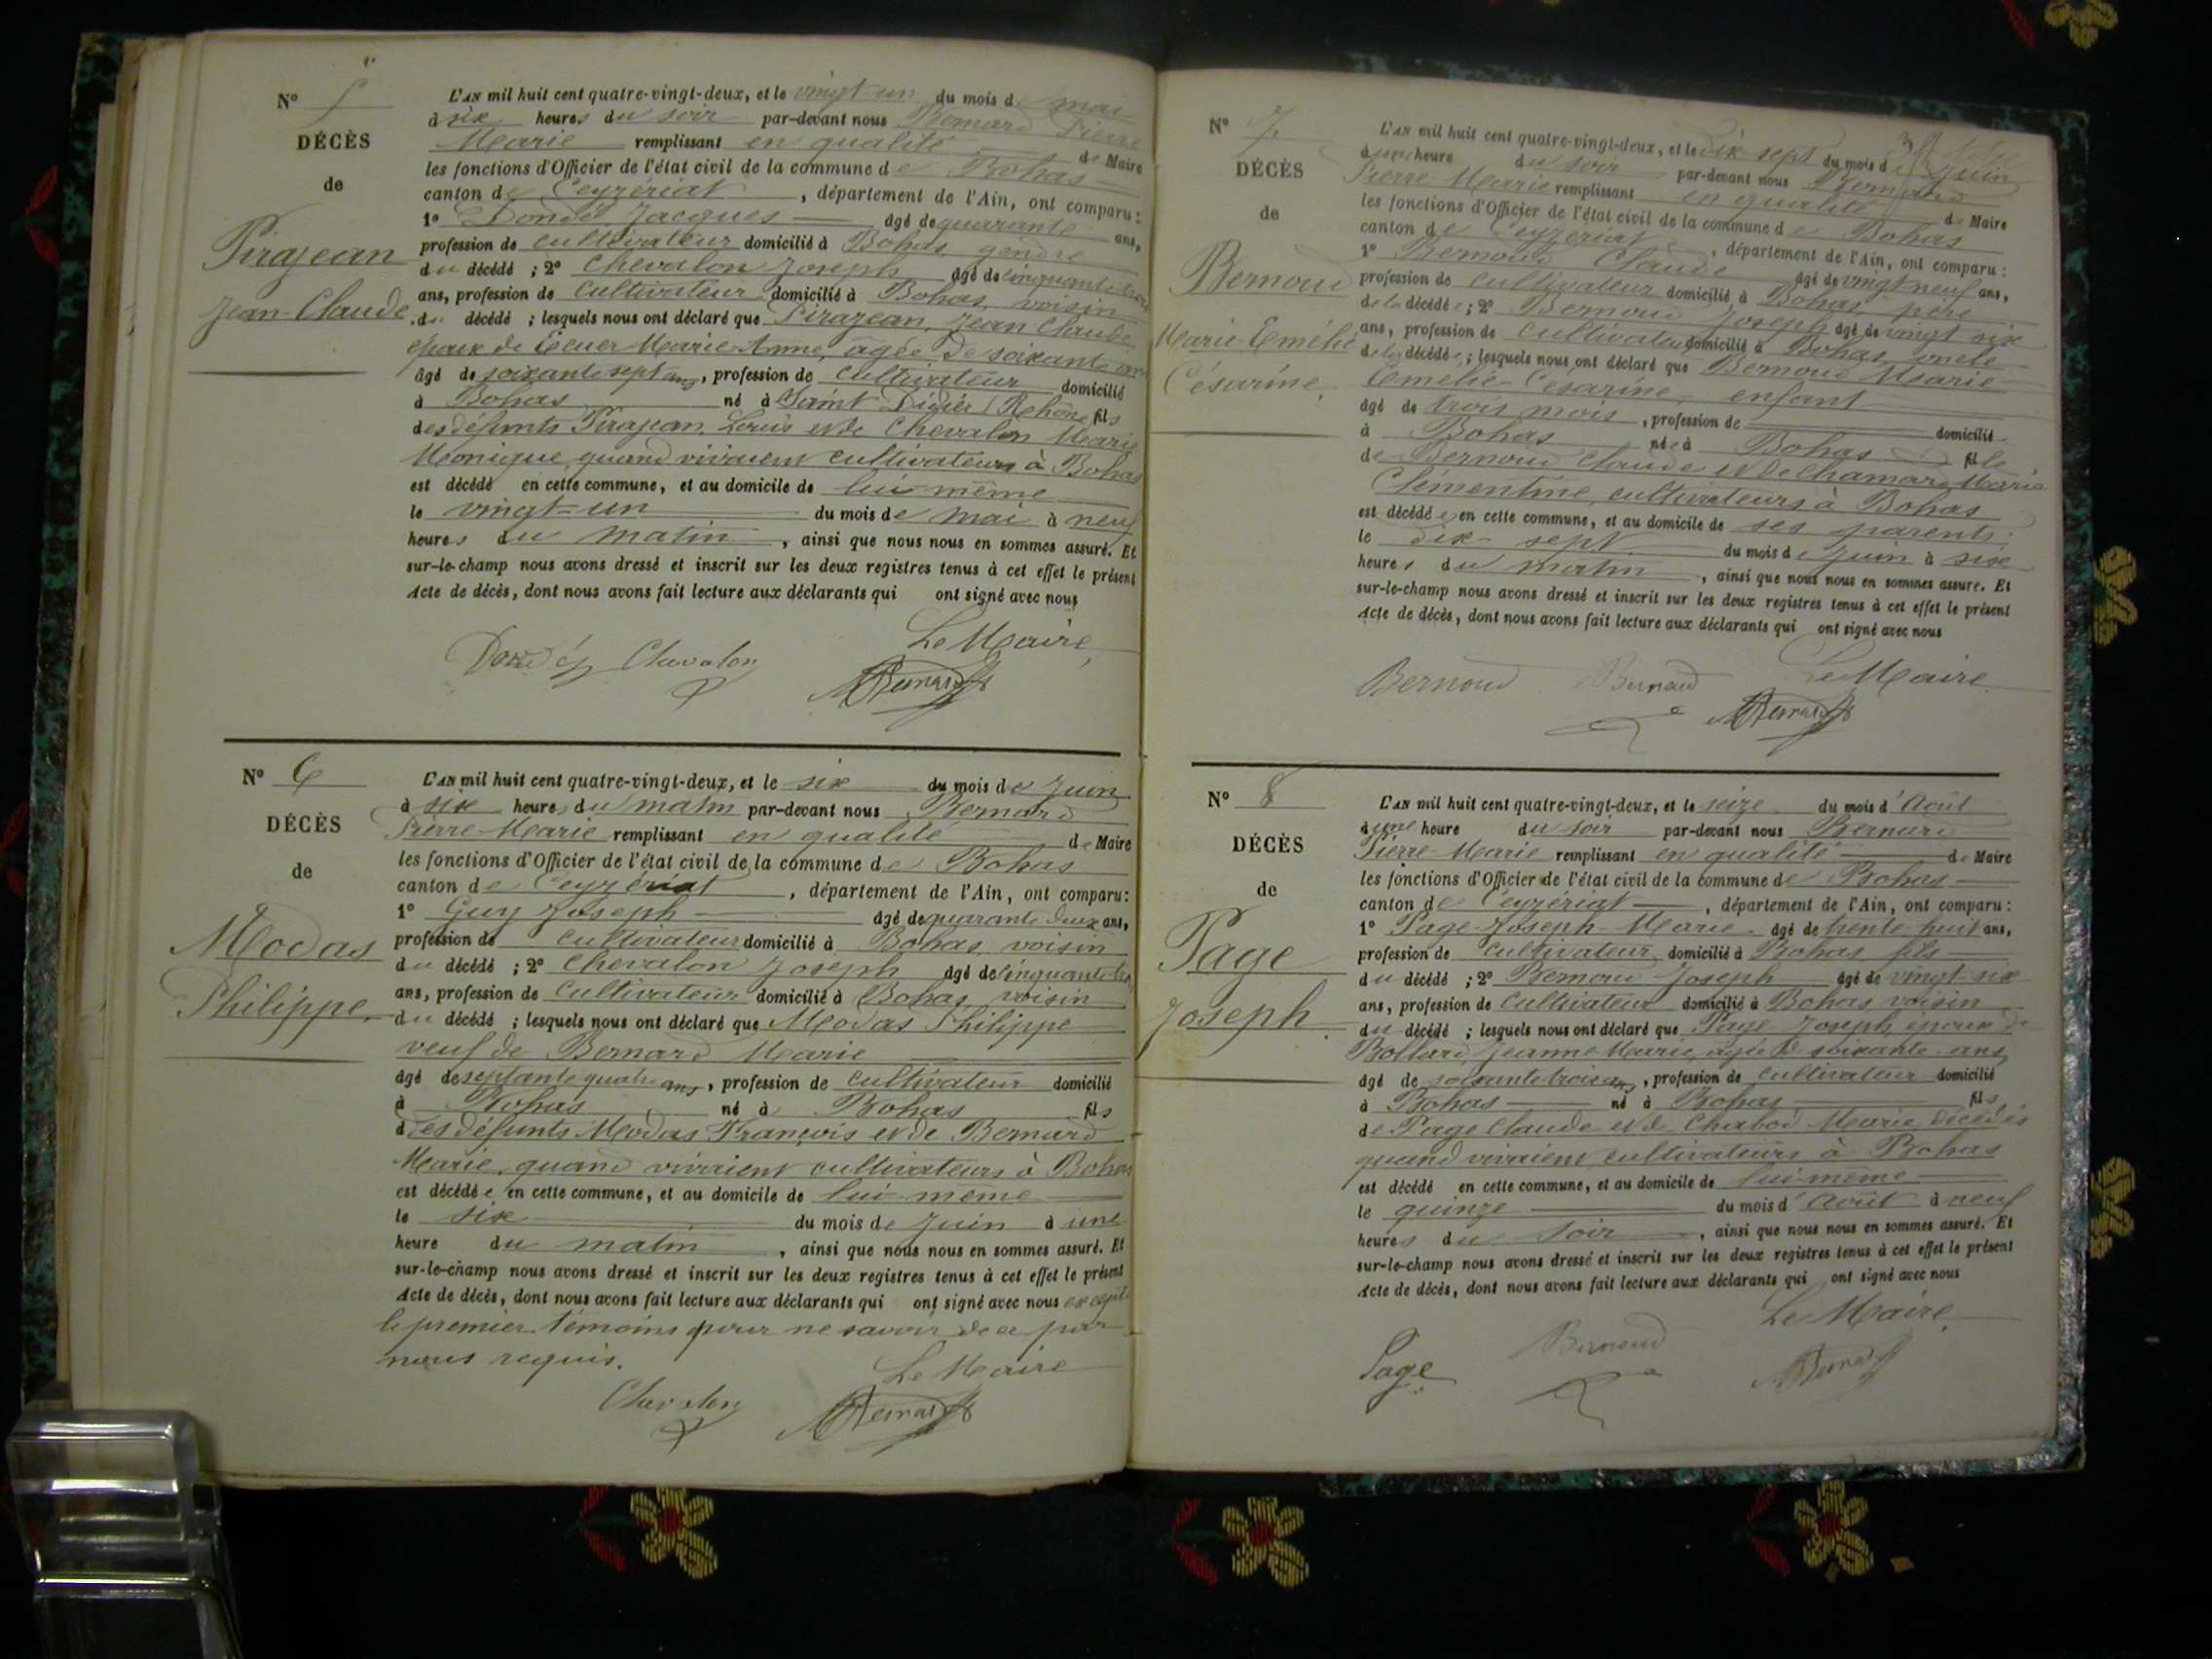 N° 5
DÉCÈS
de
Pirajean
Jean-Claude
L'AN mil huit cent quatre-vingt-deux, et le vingt un du mois de mai
à six heures du soir par-devant nous Bernard Pierre
Marie remplissant en qualité de Maire
les fonctions d'Officier de l'état civil de la commune de Bohas
canton de Ceyzériat, département de l'Ain, ont comparu:
1° Dondé Jacques âgé de quarante ans,
profession de cultivateur domicilié à Bohas, gendre
du décédé; 2° Chevalon Joseph âgé de cinquante trois
ans, profession de cultivateur domicilié à Bohas, voisin
du décédé; lesquels nous ont déclaré que Pirajean, Jean Claude
époux de Marie-Anne, agée de soixante ans
âgé de soixante sept ans, profession de cultivateur domicilié
à Bohas né à Saint Didier (Rhône) fils
des défunts Pirajean, Louis et de Chevalon Marie
Monique, quand vivaient cultivateurs à Bohas
est décédé en cette commune, et au domicile de lui-même
le vingt-un du mois de mai à neuf
heures du matin, ainsi que nous nous en sommes assuré. Et
sur-le-champ nous avons dressé et inscrit sur les deux registres tenus à cet effet le présent
Acte de décès, dont nous avons fait lecture aux déclarants qui ont signé avec nous
Le Maire,
Dondé Chevalon Bernard
N° 6
DÉCÈS
de
Modas
Philippe
L'AN mil huit cent quatre-vingt-deux, et le six du mois de Juin
à six heures du matin par-devant nous Bernard
Pierre-Marie remplissant en qualité de Maire
les fonctions d'Officier de l'état civil de la commune de Bohas
canton de Ceyzériat, département de l'Ain, ont comparu:
1° Guy Joseph âgé de quarante deux ans,
profession de cultivateur domicilié à Bohas, voisin
du décédé; 2° Chevalon Joseph âgé de cinquante trois
ans, profession de cultivateur domicilié à Bohas, voisin
du décédé; lesquels nous ont déclaré que Modas Philippe
veuf de Bernard Marie
âgé de septante quatre ans, profession de cultivateur domicilié
à Bohas né à Bohas fils
des défunts Modas François et de Bernard
Marie, quand vivaient cultivateurs à Bohas
est décédé en cette commune, et au domicile de lui-même
le six du mois de Juin à une
heure du matin, ainsi que nous nous en sommes assuré. Et
sur-le-champ nous avons dressé et inscrit sur les deux registres tenus à cet effet le présent
Acte de décès, dont nous avons fait lecture aux déclarants qui ont signé avec nous excepté
le premier témoins pour ne savoir de ce par
nous requis.
Le Maire
Chevalon Bernard
N° 7
DÉCÈS
de
Bernoud
Marie-Emélie
Césarine,
L'AN mil huit cent quatre-vingt-deux, et le dix-sept du mois de Juin
à une heure du soir par-devant nous Bernard
Pierre-Marie remplissant en qualité de Maire
les fonctions d'Officier de l'état civil de la commune de Bohas
canton de Ceyzériat, département de l'Ain, ont comparu:
1° Bernoud Claude âgé de vingt neuf ans,
profession de cultivateur domicilié à Bohas, père
de la décédée; 2° Bernoud Joseph âgé de vingt six
ans, profession de cultivateur domicilié à Bohas, oncle
de la décédée; lesquels nous ont déclaré que Bernoud Marie
Emélie-Césarine, enfant
âgé de trois mois, profession de domicilié
à Bohas née à Bohas fille
de Bernoud Claude et de Chamard Marie
Clémentine, cultivateurs à Bohas
est décédée en cette commune, et au domicile de ses parents
le dix-sept du mois de Juin à six
heures du matin, ainsi que nous nous en sommes assuré. Et
sur-le-champ nous avons dressé et inscrit sur les deux registres tenus à cet effet le présent
Acte de décès, dont nous avons fait lecture aux déclarants qui ont signé avec nous
Le Maire
Bernoud Bernoud Bernard
N° 8
DÉCÈS
de
Page
Joseph.
L'AN mil huit cent quatre-vingt-deux, et le seize du mois d'Août
à une heure du soir par-devant nous Bernard
Pierre-Marie remplissant en qualité de Maire
les fonctions d'Officier de l'état civil de la commune de Bohas
canton de Ceyzériat, département de l'Ain, ont comparu:
1° Page Joseph-Marie âgé de trente-huit ans,
profession de cultivateur domicilié à Bohas, fils
du décédé; 2° Bernoud Joseph âgé de vingt-six
ans, profession de cultivateur domicilié à Bohas voisin
du décédé; lesquels nous ont déclaré que Page Joseph, époux de
Bollard Jeanne Marie, agée de soixante ans
âgé de soixante trois ans, profession de cultivateur domicilié
à Bohas né à Bohas fils
de Page Claude et de Chabod Marie, décédés
quand vivaient cultivateurs à Bohas
est décédé en cette commune, et au domicile de lui-même
le quinze du mois d'Août à neuf
heures du soir, ainsi que nous nous en sommes assuré. Et
sur-le-champ nous avons dressé et inscrit sur les deux registres tenus à cet effet le présent
Acte de décès, dont nous avons fait lecture aux déclarants qui ont signé avec nous
Le Maire,
Page Bernoud Bernard